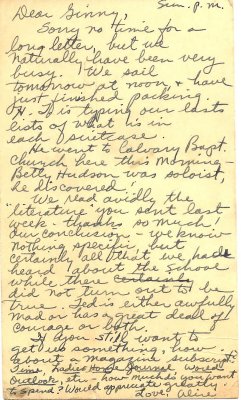 Sun. p.m.
Dear Ginny,
Sorry no time for a
long letter, but we
naturally have been very
busy. We sail
tomorrow at noon & have
just finished packing.
is typing our lasts
lists of what is in
each suitcase.
He went to Calvary Bapt.
Church here this morning -
Betty Hudson was soloist,
he discovered!
We read avidly the
"literature" you sent last
week - thanks so much!
Our conclusion - we know
nothing specific, but
certainly all that we had
heard about the school
while there certainly
did not turn out to be
true. Ted is either awfully
mad or has a great deal of
courage or both.
If you still want to
get us something, how
about a magazine subscript.
Time, Ladies Home Journal, World
Outlook, etc - how much do you want
to spend? Would appreciate greatly.
Love, Aline